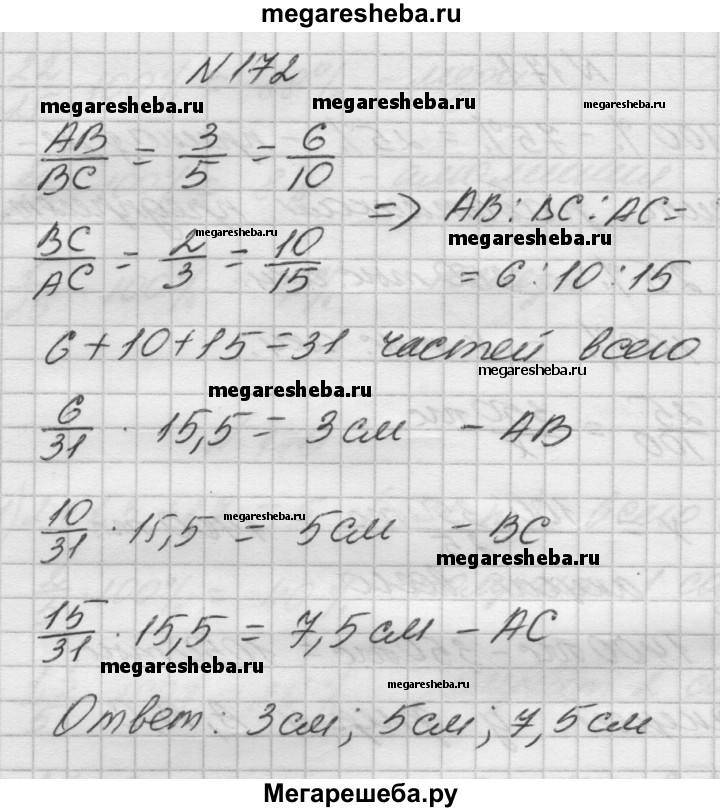 megaresheba.ru
N 172
megaresheba.ru megaresheba.ru megaresheba.ru
AB/BC = 3/5 = 6/10
=> AB : BC : AC =
megaresheba.ru megaresheba.ru
BC/AC = 2/3 = 10/15
= 6 : 10 : 15
6 + 10 + 15 = 31 частей всего
megaresheba.ru
megaresheba.ru
6/31 · 15,5 = 3 см - AB
megaresheba.ru
10/31 · 15,5 = 5 см - BC
megaresheba.ru
15/31 · 15,5 = 7,5 см - AC
megaresheba.ru
megaresheba.ru
Ответ: 3 см; 5 см; 7,5 см
Мегарешеба.ру